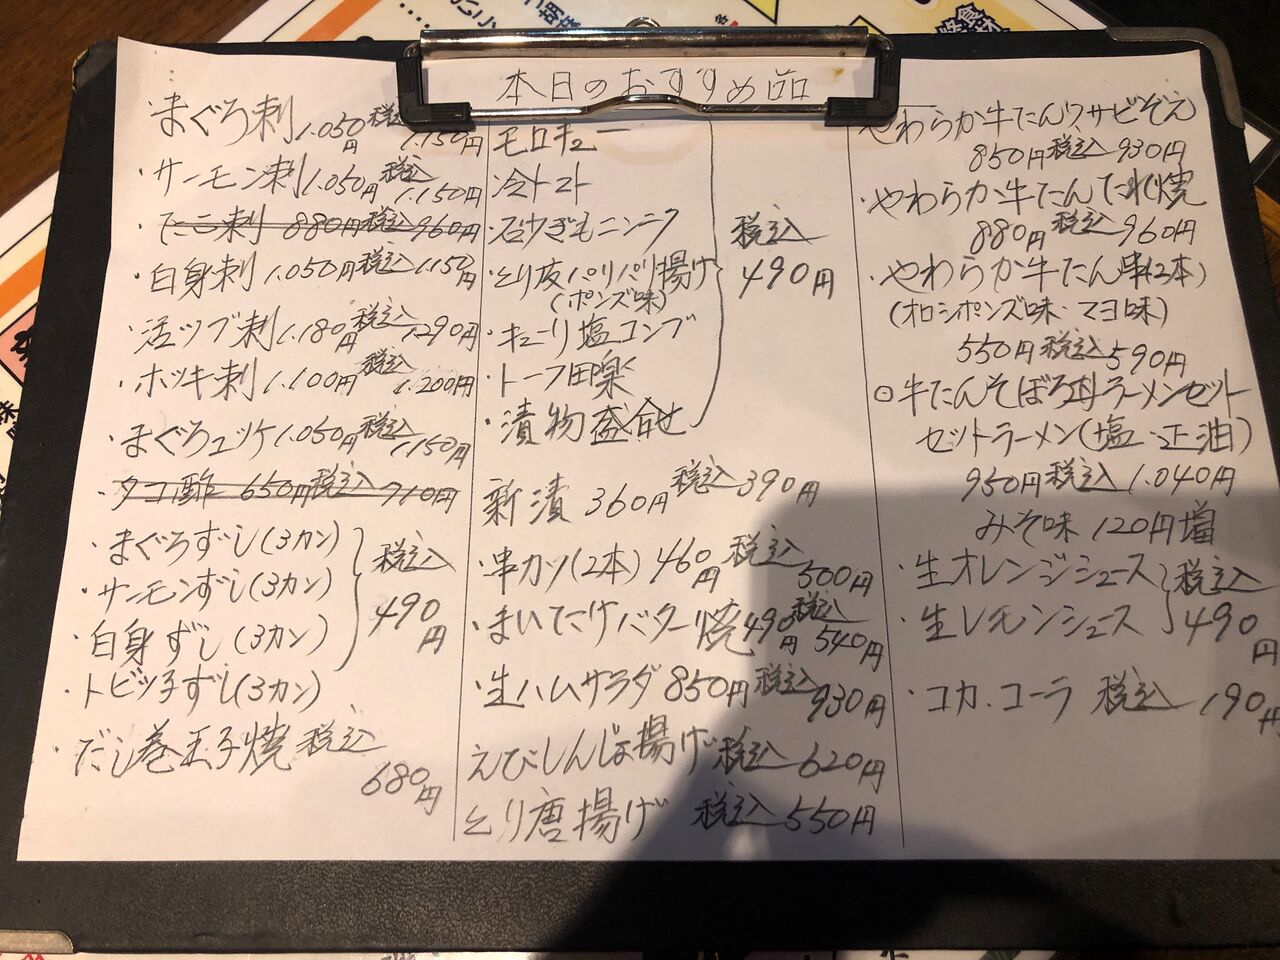 本日のおすすめ品
・まぐろ刺 1.050円 税込 1.150円
・サーモン刺 1.050円 税込 1.150円
・たこ刺 880円 税込 960円
・白身刺 1.050円 税込 1150円
・活ツブ刺 1.180円 税込 1.290円
・ホッキ刺 1.100円 税込 1.200円
・まぐろユッケ 1.050円 税込 1.150円
・タコ酢 650円 税込 710円
・まぐろずし(3カン)
・サーモンずし(3カン)
・白身ずし(3カン)
・トビッ子ずし(3カン)
税込
490円
・だし巻玉子焼 税込
680円
モロキュー
・冷トマト
・砂ぎもニンニク
・とり皮パリパリ揚げ
(ポンズ味)
・キューリ塩コンブ
・トーフ田楽
・漬物盛合せ
税込
490円
新漬 360円 税込 390円
・串カツ(2本) 460円 税込 500円
・まいたけバター焼 490円 税込 540円
・生ハムサラダ 850円 税込 930円
えびしんじょ揚げ 税込 620円
とり唐揚げ 税込 550円
やわらか牛たんワサビぞえ
850円 税込 930円
・やわらか牛たんたれ焼
880円 税込 960円
・やわらか牛たん串(2本)
(オロシポンズ味・マヨ味)
550円 税込 590円
◎牛たんそぼろ丼ラーメンセット
セットラーメン(塩・正油)
950円 税込 1.040円
みそ味 120円増
・生オレンジジュース
・生レモンジュース
税込
490円
・コカ・コーラ 税込 190円